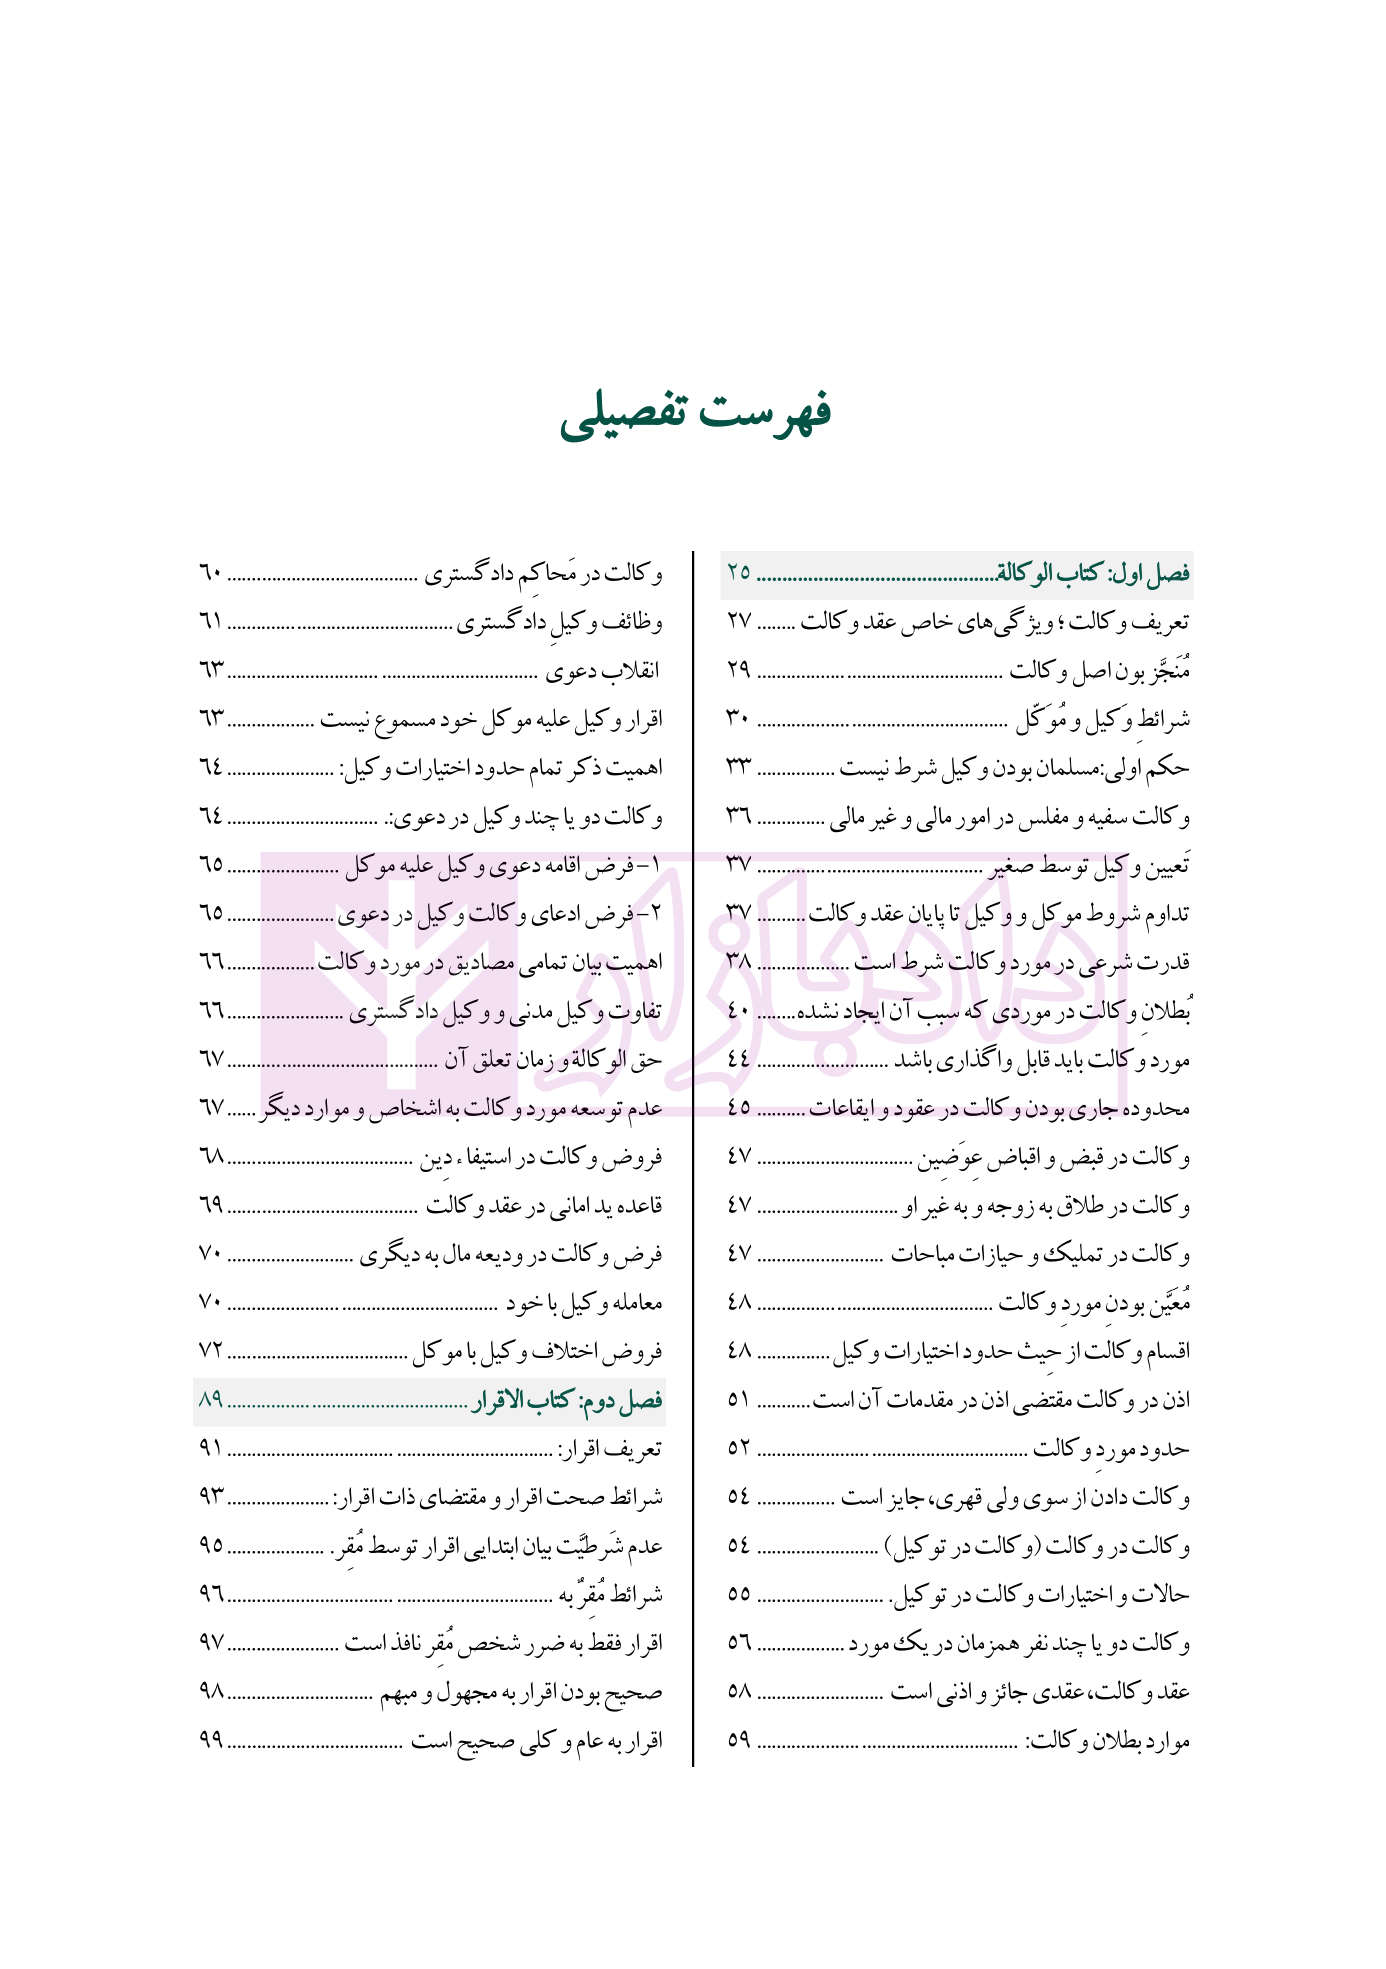 فهرست تفصیلی
فصل اول: کتاب الوکالة................................................ ٢٥
تعریف وکالت؛ ویژگی‌های خاص عقد وکالت ........ ٢٧
مُنَجَّز بون اصل وکالت .................................................. ٢٩
شرائطِ وَکیل و مُوَکِّل ................................................... ٣٠
حکم اولی:مسلمان بودن وکیل شرط نیست ................ ٣٣
وکالت سفیه و مفلس در امور مالی و غیر مالی .............. ٣٦
تَعیین وکیل توسط صغیر .............................................. ٣٧
تداوم شروط موکل و وکیل تا پایان عقد وکالت.......... ٣٧
قدرت شرعی در مورد وکالت شرط است ................... ٣٨
بُطلانِ وکالت در موردی که سبب آن ایجاد نشده........ ٤٠
مورد وکالت باید قابل واگذاری باشد ........................... ٤٤
محدوده جاری بودن وکالت در عقود و ایقاعات .......... ٤٥
وکالت در قبض و اقباض عِوَضِین ................................ ٤٧
وکالت در طلاق به زوجه و به غیر او ............................. ٤٧
وکالت در تملیک و حیازات مباحات .......................... ٤٧
مُعَیَّن بودنِ موردِ وکالت ................................................ ٤٨
اقسام وکالت از حِیث حدود اختیارات وکیل............... ٤٨
اذن در وکالت مقتضی اذن در مقدمات آن است........... ٥١
حدود موردِ وکالت ....................................................... ٥٢
وکالت دادن از سوی ولی قهری، جایز است ................ ٥٤
وکالت در وکالت (وکالت در توکیل) ......................... ٥٤
حالات و اختیارات وکالت در توکیل. .......................... ٥٥
وکالت دو یا چند نفر همزمان در یک مورد .................. ٥٦
عقد وکالت، عقدی جائز و اذنی است .......................... ٥٨
موارد بطلان وکالت: ..................................................... ٥٩
وکالت در مَحاکِم دادگستری ....................................... ٦٠
وظائف وکیلِ دادگستری .............................................. ٦١
انقلاب دعوی ............................................................... ٦٣
اقرار وکیل علیه موکل خود مسموع نیست .................. ٦٣
اهمیت ذکر تمام حدود اختیارات وکیل: ...................... ٦٤
وکالت دو یا چند وکیل در دعوی:. ............................... ٦٤
١- فرض اقامه دعوی وکیل علیه موکل ....................... ٦٥
٢- فرض ادعای وکالت وکیل در دعوی ...................... ٦٥
اهمیت بیان تمامی مصادیق در مورد وکالت.................. ٦٦
تفاوت وکیل مدنی و وکیل دادگستری ........................ ٦٦
حق الوکالة و زمان تعلق آن ........................................... ٦٧
عدم توسعه مورد وکالت به اشخاص و موارد دیگر...... ٦٧
فروض وکالت در استیفاء دِین ...................................... ٦٨
قاعده ید امانی در عقد وکالت ....................................... ٦٩
فرض وکالت در ودیعه مال به دیگری .......................... ٧٠
معامله وکیل با خود ....................................................... ٧٠
فروض اختلاف وکیل با موکل ..................................... ٧٢
فصل دوم: کتاب الاقرار ................................................. ٨٩
تعریف اقرار: .................................................................. ٩١
شرائط صحت اقرار و مقتضای ذات اقرار: ..................... ٩٣
عدم شَرطیَّت بیان ابتدایی اقرار توسط مُقِر. .................... ٩٥
شرائط مُقِرٌ به .................................................................. ٩٦
اقرار فقط به ضرر شخص مُقِر نافذ است ....................... ٩٧
صحیح بودن اقرار به مجهول و مبهم .............................. ٩٨
اقرار به عام و کلی صحیح است .................................... ٩٩
دادبازار